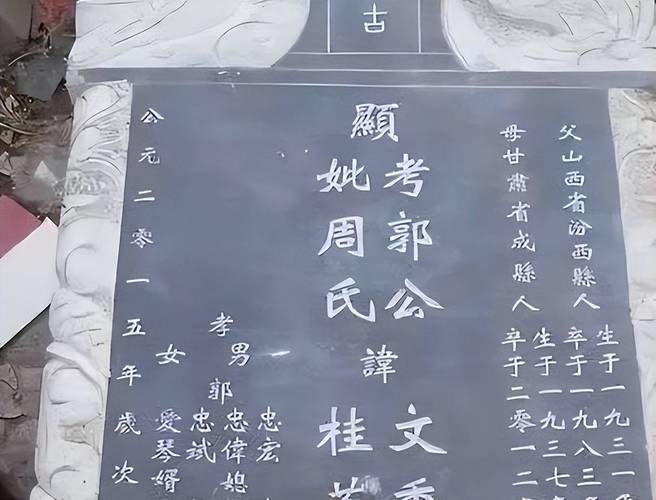 古
父山西省汾西縣人
生于一九三一
卒于一九八三
母甘肅省成縣人
生于一九三七
卒于二零一二
顯
考郭公
妣周氏
諱
文
桂
孝男郭
忠宏
忠偉媳
忠斌
女
愛琴婿
公元二零一五年歲次